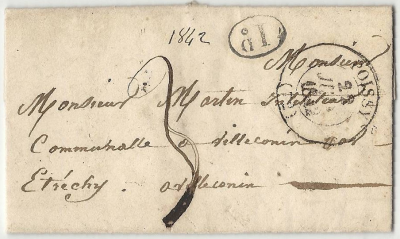 1842
1D
Monsieur
POISSY
Monsieur Martin instituteur
Communalle a villeconin par
Etréchy. a villeconin
3